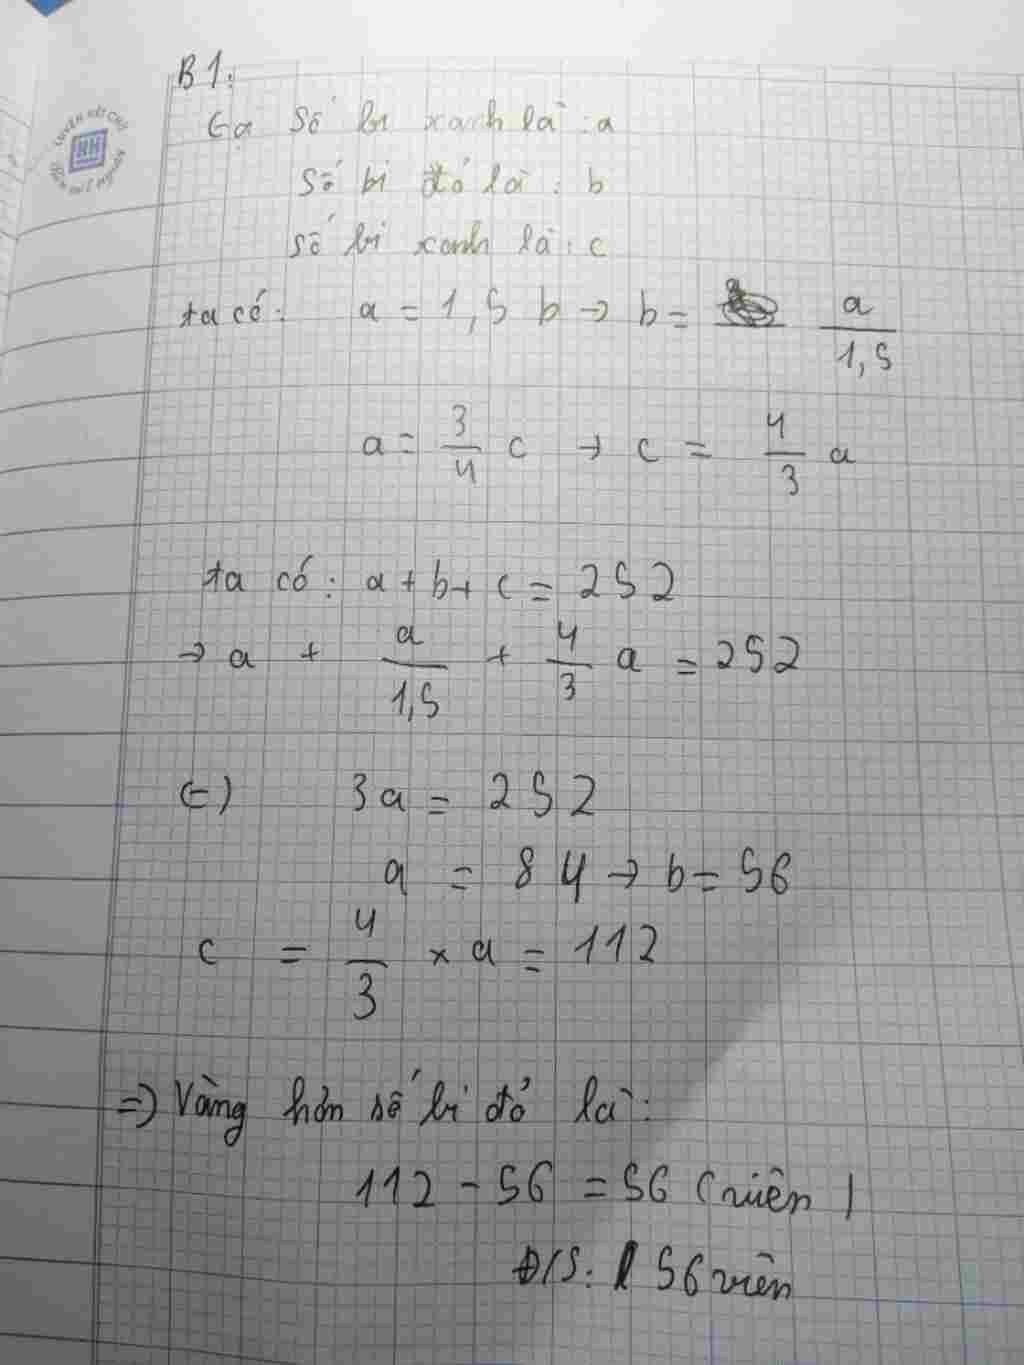 B1:
Gọi số bi xanh là: a
số bi đỏ là: b
số bi xanh là: c
ta có: a = 1,5 b → b = a/1,5
a = 3/4 c → c = 4/3 a
ta có: a + b + c = 252
→ a + a/1,5 + 4/3 a = 252
(-) 3a = 252
a = 84 → b = 56
c = 4/3 × a = 112
=> Vàng hơn số bi đỏ là:
112 - 56 = 56 (viên)
Đ/S: 56 viên